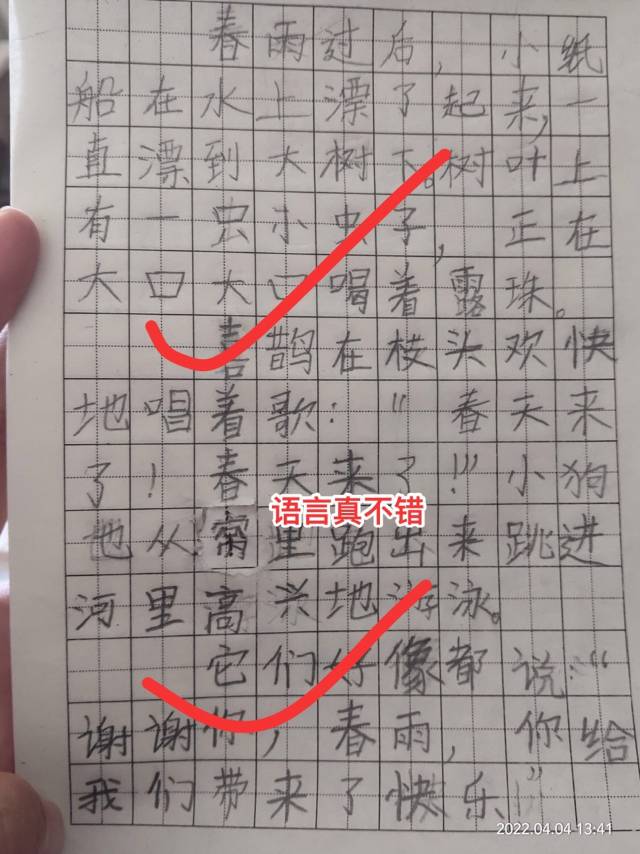 春雨过后，小纸
船在水上漂了起来，一
直漂到大树下。树叶上
有一虫小虫子，正在
大口大口喝着露珠。
喜鹊在枝头欢快
地唱着歌：“春天来
了！春天来了！”小狗
也从窝里跑出来跳进
语言真不错
河里高兴地游泳。
它们好像都说：“
谢谢你，春雨，你给
我们带来了快乐！”
2022.04.04 13:41